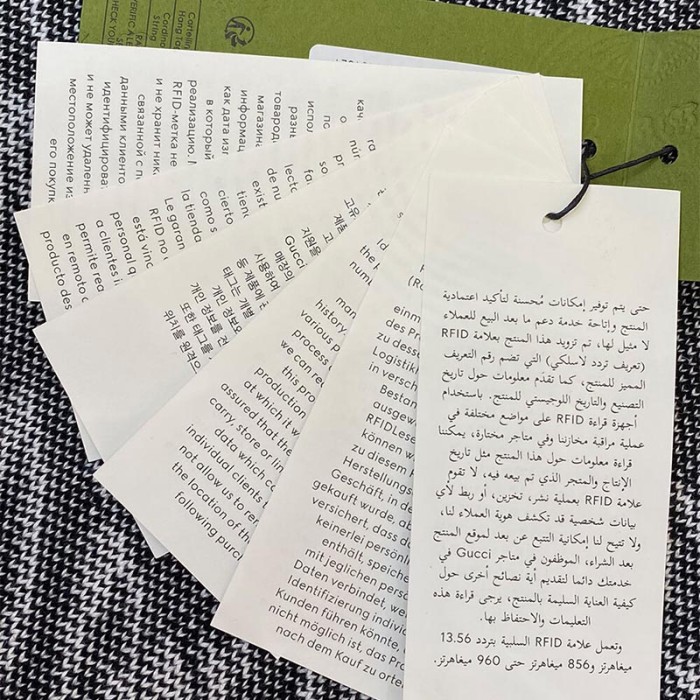 Cartellin
Hang Ta
Cardina
String
VERIFIC A LE
CHECK YOUR
качес
о
по
испол
разны
товарод
магазин
информац
как дата изг
в который
реализацию. М
RFID-метка не
и не хранит ник
связанной с п
данными клиенто
идентифицирова
и не может удаленн
местоположение из
его покупк
lecto
de nu
exist
cierto
tiend
como s
la tienda
Le garan
RFID no
está vinc
personal q
a clientes i
permite rea
en remoto c
producto des
고유
제품
지원을
Gucci
매장의
사용하여
동 제품에
태그는 개별
개인 정보의
개인 정보를 전
또한 태그를
위치를 원격으
the
num
man
history
various p
process o
we can re
this pro
production
at which it w
assured that the
carry, store or lin
data which c
individual clients
not allow us to re
the location of the
following purc
(Ra
einm
des Pro
zu desse
Logistikl
in versch
Bestan
ausgew
RFIDLese
können w
zu diesem
Herstellungs
Geschäft, in de
gekauft wurde, ab
versichert, dass d
keinerlei persönl
enthält, speiche
mit jeglichen perso
Daten verbindet, we
Identifizierung individ
Kunden führen könnte,
nicht möglich ist, das Pro
nach dem Kauf zu orte
حتى يتم توفير إمكانات مُحسنة لتأكيد اعتمادية
المنتج وإتاحة خدمة دعم ما بعد البيع للعملاء
لا مثيل لها، تم تزويد هذا المنتج بعلامة RFID
(تعريف تردد لاسلكي) التي تضم رقم التعريف
المميز للمنتج، كما تقدّم معلومات حول تاريخ
التصنيع والتاريخ اللوجيستي للمنتج. باستخدام
أجهزة قراءة RFID على مواضع مختلفة في
عملية مراقبة مخازننا وفي متاجر مختارة، يمكننا
قراءة معلومات حول هذا المنتج مثل تاريخ
الإنتاج والمتجر الذي تم بيعه فيه، لا تقوم
علامة RFID بعملية نشر، تخزين، أو ربط لأي
بيانات شخصية قد تكشف هوية العملاء لنا،
ولا تتيح لنا إمكانية التتبع عن بعد لموقع المنتج
بعد الشراء، الموظفون في متاجر Gucci في
خدمتك دائما لتقديم أية نصائح أخرى حول
كيفية العناية السليمة بالمنتج، يرجى قراءة هذه
التعليمات والاحتفاظ بها.
وتعمل علامة RFID السلبية بتردد 13.56
ميغاهرتز و856 ميغاهرتز حتى 960 ميغاهرتز.